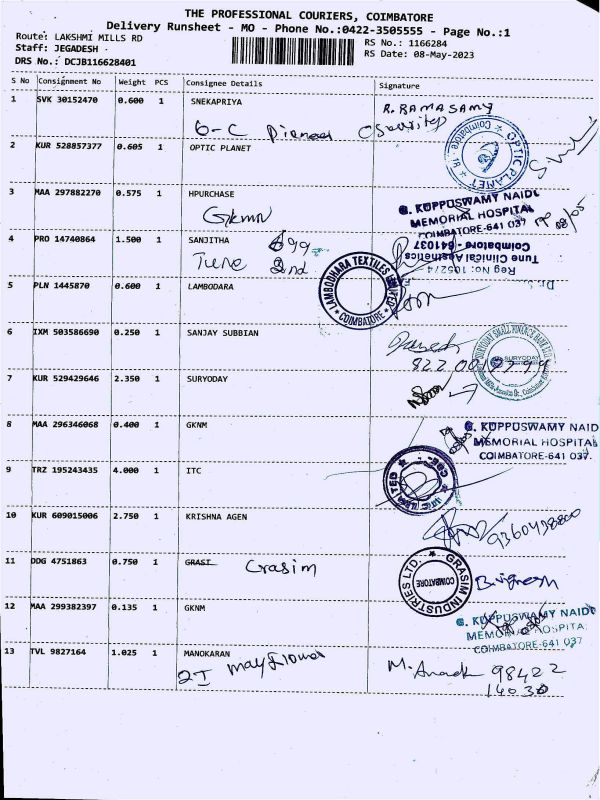 THE PROFESSIONAL COURIERS, COIMBATORE
Delivery Runsheet - MO - Phone No.:0422-3505555 - Page No.:1
Route: LAKSHMI MILLS RD
RS No.: 1166284
Staff: JEGADESH
RS Date: 08-May-2023
DRS No.: DCJB116628401
S No Consignment No Weight PCS Consignee Details Signature
1 SVK 30152470 0.600 1 SNEKAPRIYA R. RAMASAMY
6-C Pioneer
2 KUR 528857377 0.605 1 OPTIC PLANET
OPTIC PLANET Coimbatore - 18
3 MAA 297882270 0.575 1 HPURCHASE
GKMN
G. KUPPUSWAMY NAIDU
MEMORIAL HOSPITAL
COIMBATORE-641 037
4 PRO 14740864 1.500 1 SANJITHA
Tune 2nd
Tune Clinical Aesthetics
Coimbatore - 641037
Reg No: 105274
5 PLN 1445870 0.600 1 LAMBODARA
LAMBODHARA TEXTILES LIMITED COIMBATORE
6 IXM 503586690 0.250 1 SANJAY SUBBIAN
7 KUR 529429646 2.350 1 SURYODAY
SURYODAY SMALL FINANCE BANK LTD
SURYODAY
8 MAA 296346068 0.400 1 GKNM
G. KUPPUSWAMY NAID
MEMORIAL HOSPITAL
COIMBATORE-641 037.
9 TRZ 195243435 4.000 1 ITC
ITC LIMITED
10 KUR 609015006 2.750 1 KRISHNA AGEN
9360438800
11 DDG 4751863 0.750 1 GRASI Grasim
GRASIM INDUSTRIES LTD. COIMBATORE
12 MAA 299382397 0.135 1 GKNM
G. KUPPUSWAMY NAIDU
MEMORIAL HOSPITAL
COIMBATORE-641 037
13 TVL 9827164 1.025 1 MANOKARAN
2I mayflower
M. Anack 98422
14030